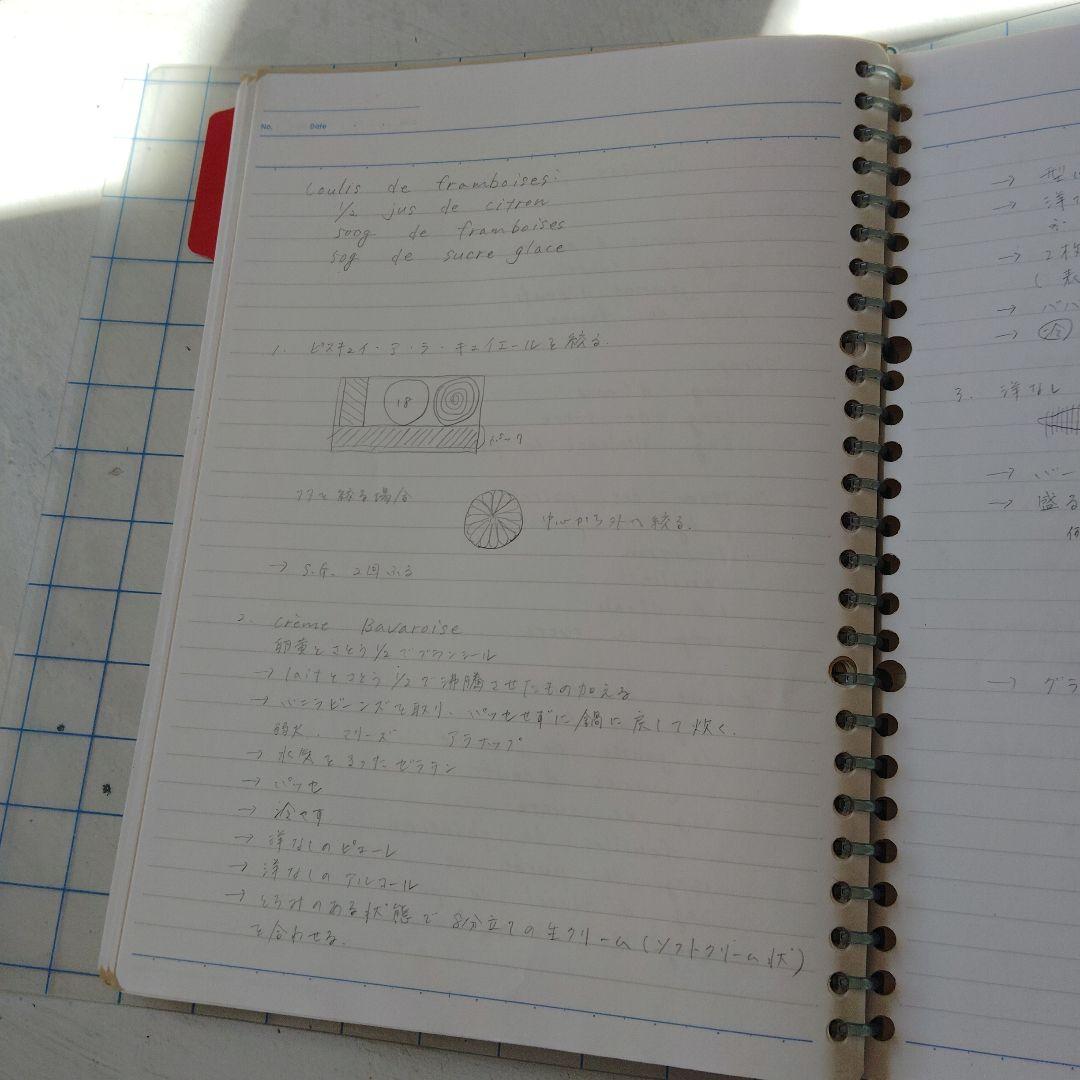 No.
Date
Coulis de framboises:
1/2 jus de citron
500g de framboises
50g de sucre glace
1. ビスキュイ・ア・ラ・キュイエールを絞る.
18
絞る場合
中心から外へ絞る.
→ S.G. 2回ふる
2. Crème Bavaroise
卵黄とさとう1/2でブランシール
→ laitとさとう1/2で沸騰させたもの加える
→ バニラビーンズを取り、パッセせずに鍋に戻して炊く.
弱火. アリーズ アラナップ
→ 水気をきったゼラチン
→ パッセ
→ 冷やす
→ 洋なしのピューレ
→ 洋なしのアルコール
→ とろみのある状態で8分立ての生クリーム(ソフトクリーム状)
を合わせる.
→ 型
→ 洋
→ 2枚
(表
→ バハ
→ 冷
3. 洋なし
→ バー
→ 盛る
何
→ グラ